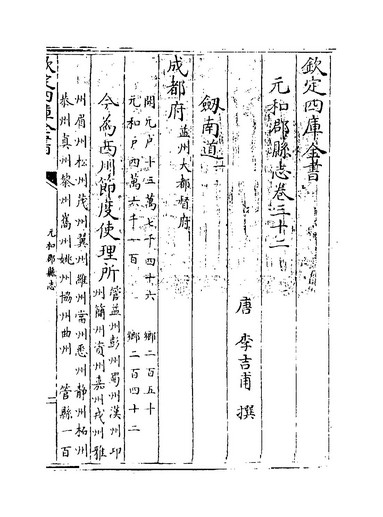 欽定四庫全書
元和郡縣志卷三十二
唐 李吉甫 撰
劒南道
成都府 益州大都督府
開元户十三萬七千四十六 鄉二百五十
元和户四萬六千一百 鄉二百四十二
今為西川節度使理所 管益州彭州蜀州漢州卭
州簡州資州嘉州戎州雅
州眉州松州茂州翼州維州當州悉州静州柘州
恭州真州黎州嶲州姚州協州曲州 管縣一百
欽定四庫全書
元和郡縣志